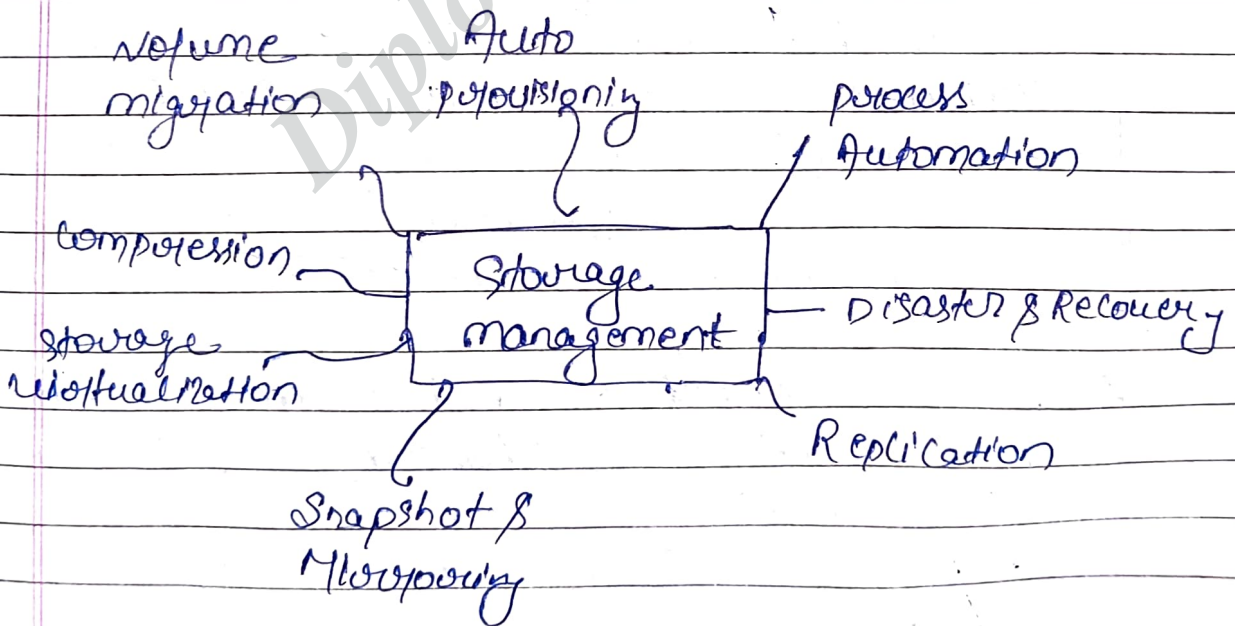 Volume
migration
Auto
provisioning
process
Automation
Compression
Storage
management
Disaster & Recovery
storage
virtualization
Replication
Snapshot &
Mirroring
Diplo